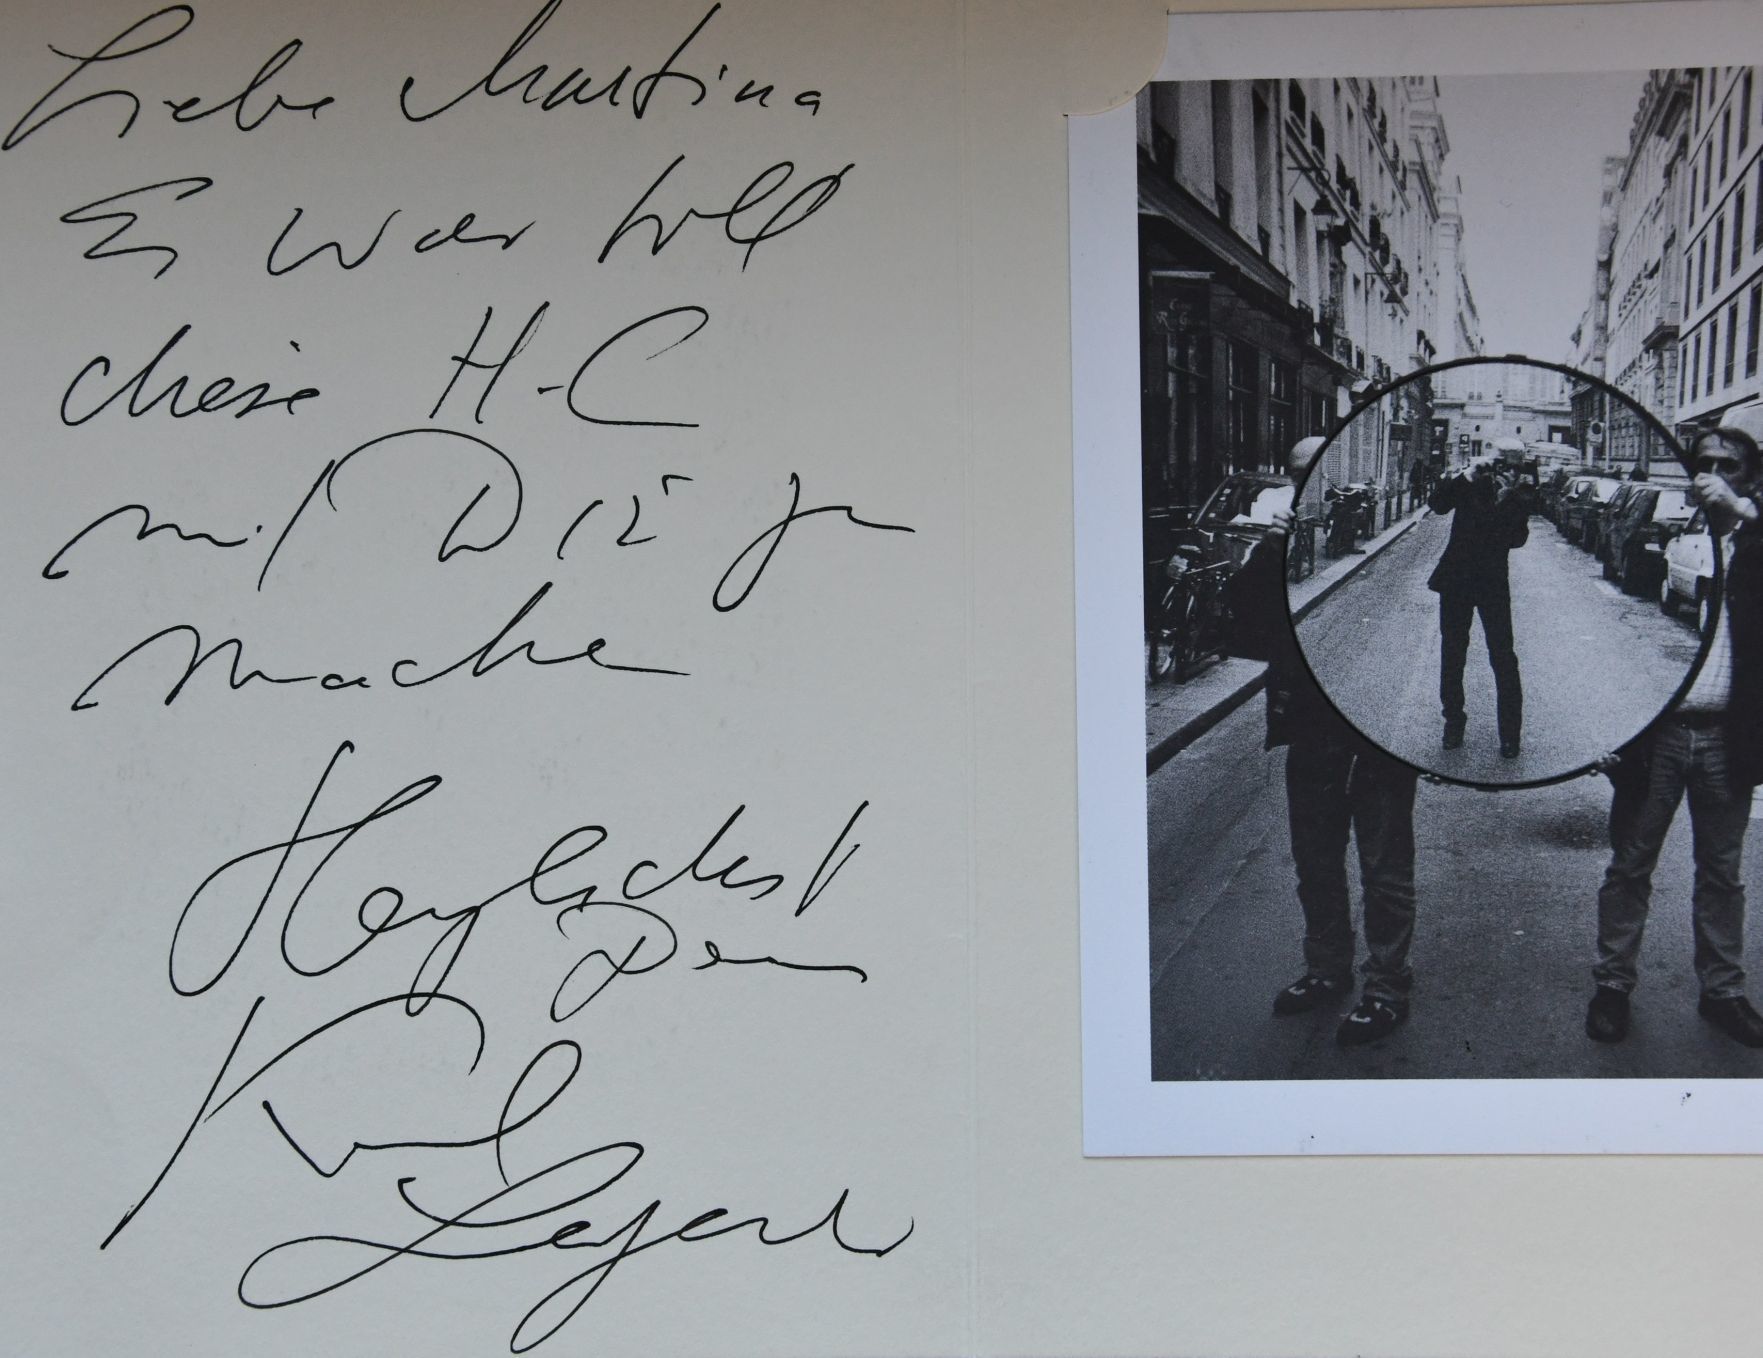 Liebe Martina
Es war toll
diese H-C
mit Dir zu
machen
Herzlichst
Dein
Karl
Lagerfeld